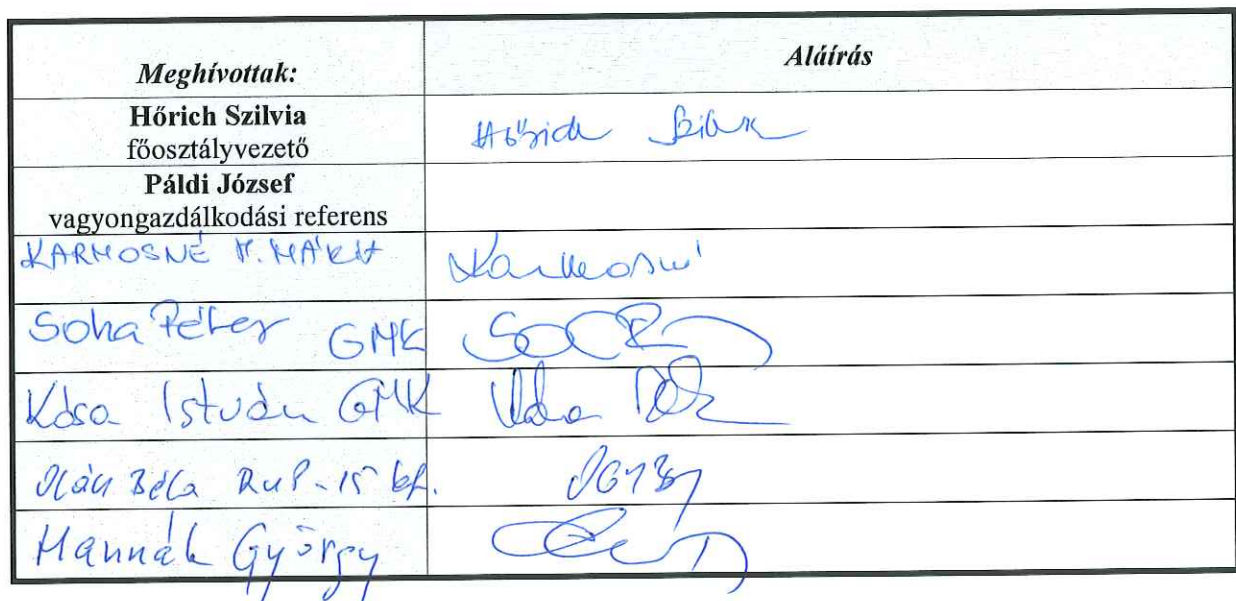 Meghívottak: Aláírás
Hőrich Szilvia
főosztályvezető
Hőrich Szilvia
Páldi József
vagyongazdálkodási referens
KARMOSNÉ Karmosné
Soha Péter GMK
Kósa István GMK
Béla RUP-15 kf.
Hannák György